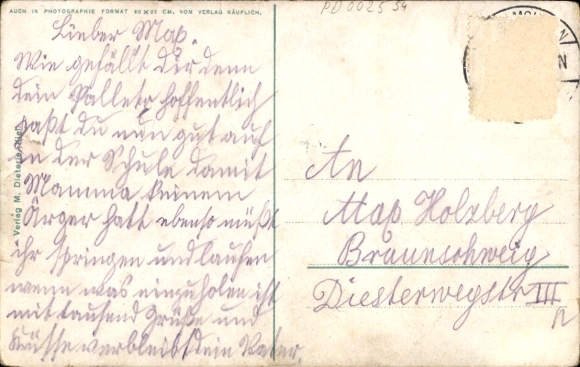 AUCH IN PHOTOGRAPHIE FORMAT 80×28 CM. VOM VERLAG KÄUFLICH.
PD0025 54
Lieber Max.
Wie gefällt dir denn
dein hoffentlich
paßt du nun gut auf
in der Schule damit
Mamma keinem
Ärger hatt ebenso müßt
ihr springen und laufen
wenn was einzuholen ist
mit tausend Grüße und
Küsse verbleibt dein Vater.
Verlag M. Dieterle, Kiel
An
Max Holzberg
Braunschweig
Diesterwegstr III